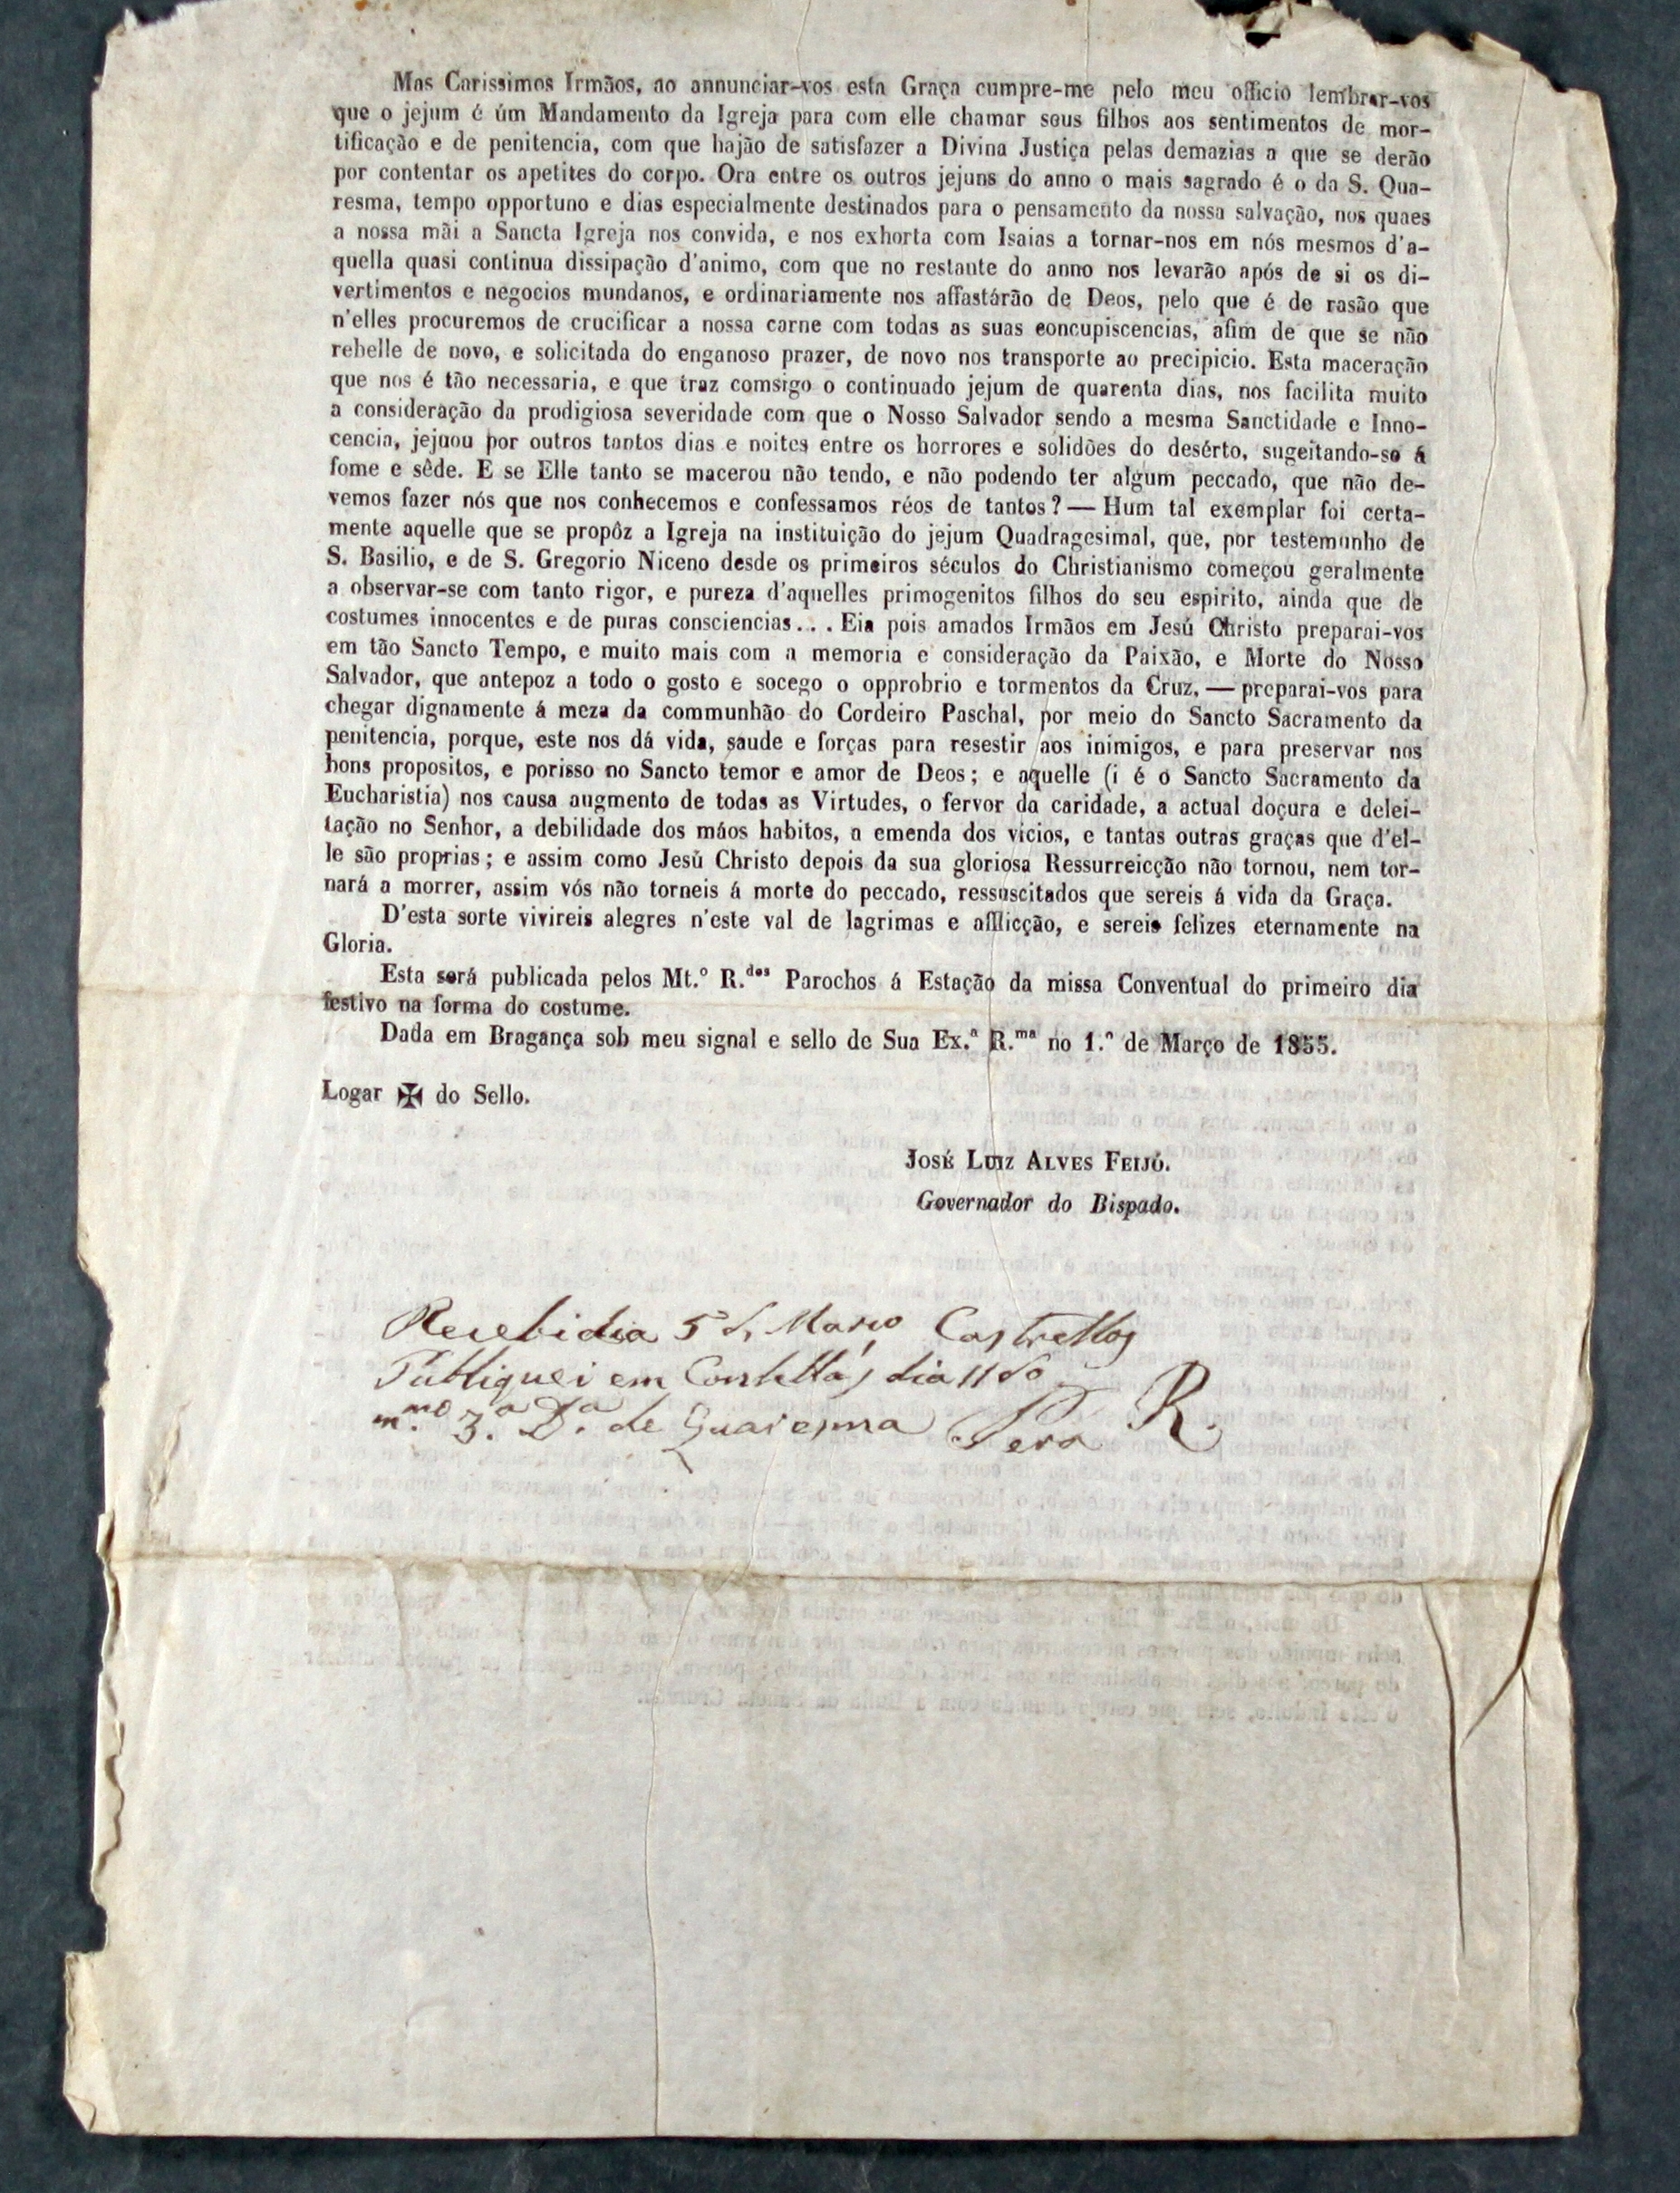 Mas Carissimos Irmãos, ao annunciar-vos esta Graça cumpre-me pelo meu officio lembrar-vos
que o jejum é úm Mandamento da Igreja para com elle chamar seus filhos aos sentimentos de mor-
tificação e de penitencia, com que hajão de satisfazer a Divina Justiça pelas demazias a que se derão
por contentar os apetites do corpo. Ora entre os outros jejuns do anno o mais sagrado é o da S. Qua-
resma, tempo opportuno e dias especialmente destinados para o pensamento da nossa salvação, nos quaes
a nossa mãi a Sancta Igreja nos convida, e nos exhorta com Isaias a tornar-nos em nós mesmos d'a-
quella quasi continua dissipação d'animo, com que no restante do anno nos levarão após de si os di-
vertimentos e negocios mundanos, e ordinariamente nos affastárão de Deos, pelo que é de rasão que
n'elles procuremos de crucificar a nossa carne com todas as suas concupiscencias, afim de que se não
rebelle de novo, e solicitada do enganoso prazer, de novo nos transporte ao precipicio. Esta maceração
que nos é tão necessaria, e que traz comsigo o continuado jejum de quarenta dias, nos facilita muito
a consideração da prodigiosa severidade com que o Nosso Salvador sendo a mesma Sanctidade e Inno-
cencia, jejuou por outros tantos dias e noites entre os horrores e solidões do desérto, sugeitando-se á
fome e sêde. E se Elle tanto se macerou não tendo, e não podendo ter algum peccado, que não de-
vemos fazer nós que nos conhecemos e confessamos réos de tantos? — Hum tal exemplar foi certa-
mente aquelle que se propôz a Igreja na instituição do jejum Quadragesimal, que, por testemunho de
S. Basilio, e de S. Gregorio Niceno desde os primeiros séculos do Christianismo começou geralmente
a observar-se com tanto rigor, e pureza d'aquelles primogenitos filhos do seu espirito, ainda que de
costumes innocentes e de puras consciencias... Eia pois amados Irmãos em Jesú Christo preparai-vos
em tão Sancto Tempo, e muito mais com a memoria e consideração da Paixão, e Morte do Nosso
Salvador, que antepoz a todo o gosto e socego o opprobrio e tormentos da Cruz, — preparai-vos para
chegar dignamente á meza da communhão do Cordeiro Paschal, por meio do Sancto Sacramento da
penitencia, porque, este nos dá vida, saude e forças para resestir aos inimigos, e para preservar nos
bons propositos, e porisso no Sancto temor e amor de Deos; e aquelle (i é o Sancto Sacramento da
Eucharistia) nos causa augmento de todas as Virtudes, o fervor da caridade, a actual doçura e delei-
tação no Senhor, a debilidade dos máos habitos, a emenda dos vicios, e tantas outras graças que d'el-
le são proprias; e assim como Jesú Christo depois da sua gloriosa Ressurreicção não tornou, nem tor-
nará a morrer, assim vós não torneis á morte do peccado, ressuscitados que sereis á vida da Graça.
D'esta sorte vivireis alegres n'este val de lagrimas e afflicção, e sereis felizes eternamente na
Gloria.
Esta será publicada pelos Mt.º R.dos Parochos á Estação da missa Conventual do primeiro dia
festivo na forma do costume.
Dada em Bragança sob meu signal e sello de Sua Ex.ª R.ma no 1.º de Março de 1855.
Logar ✠ do Sello.
José Luiz Alves Feijó.
Governador do Bispado.
Recebi dia 5 de Março Castrellos
Publiquei em dia 11 do
m.mo 3.ª D.ª de Quaresma R.